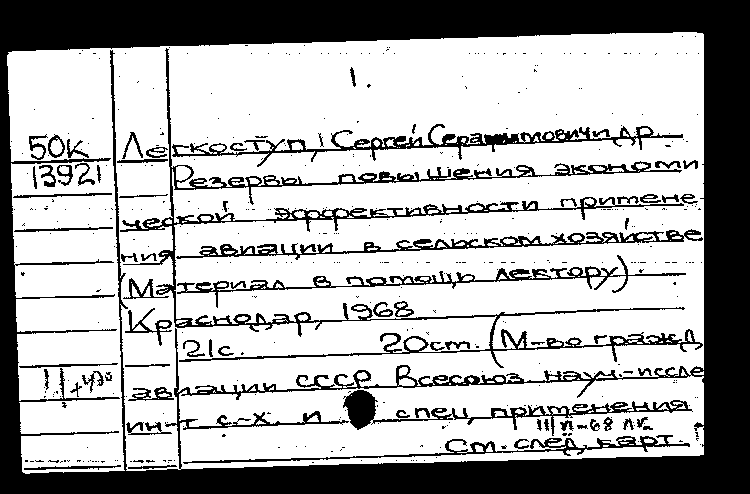 1.
50К Легкоступ, Сергей Серафимович и др.
13921 Резервы повышения экономи
ческой эффективности примене
ния авиации в сельском хозяйстве
(Материал в помощь лектору).
Краснодар, 1968
21с. 20см. (М-во гражд.
авиации СССР. Всесоюз. науч.-иссле
ин-т с.-х. и спец. применения
Ст. след. карт.